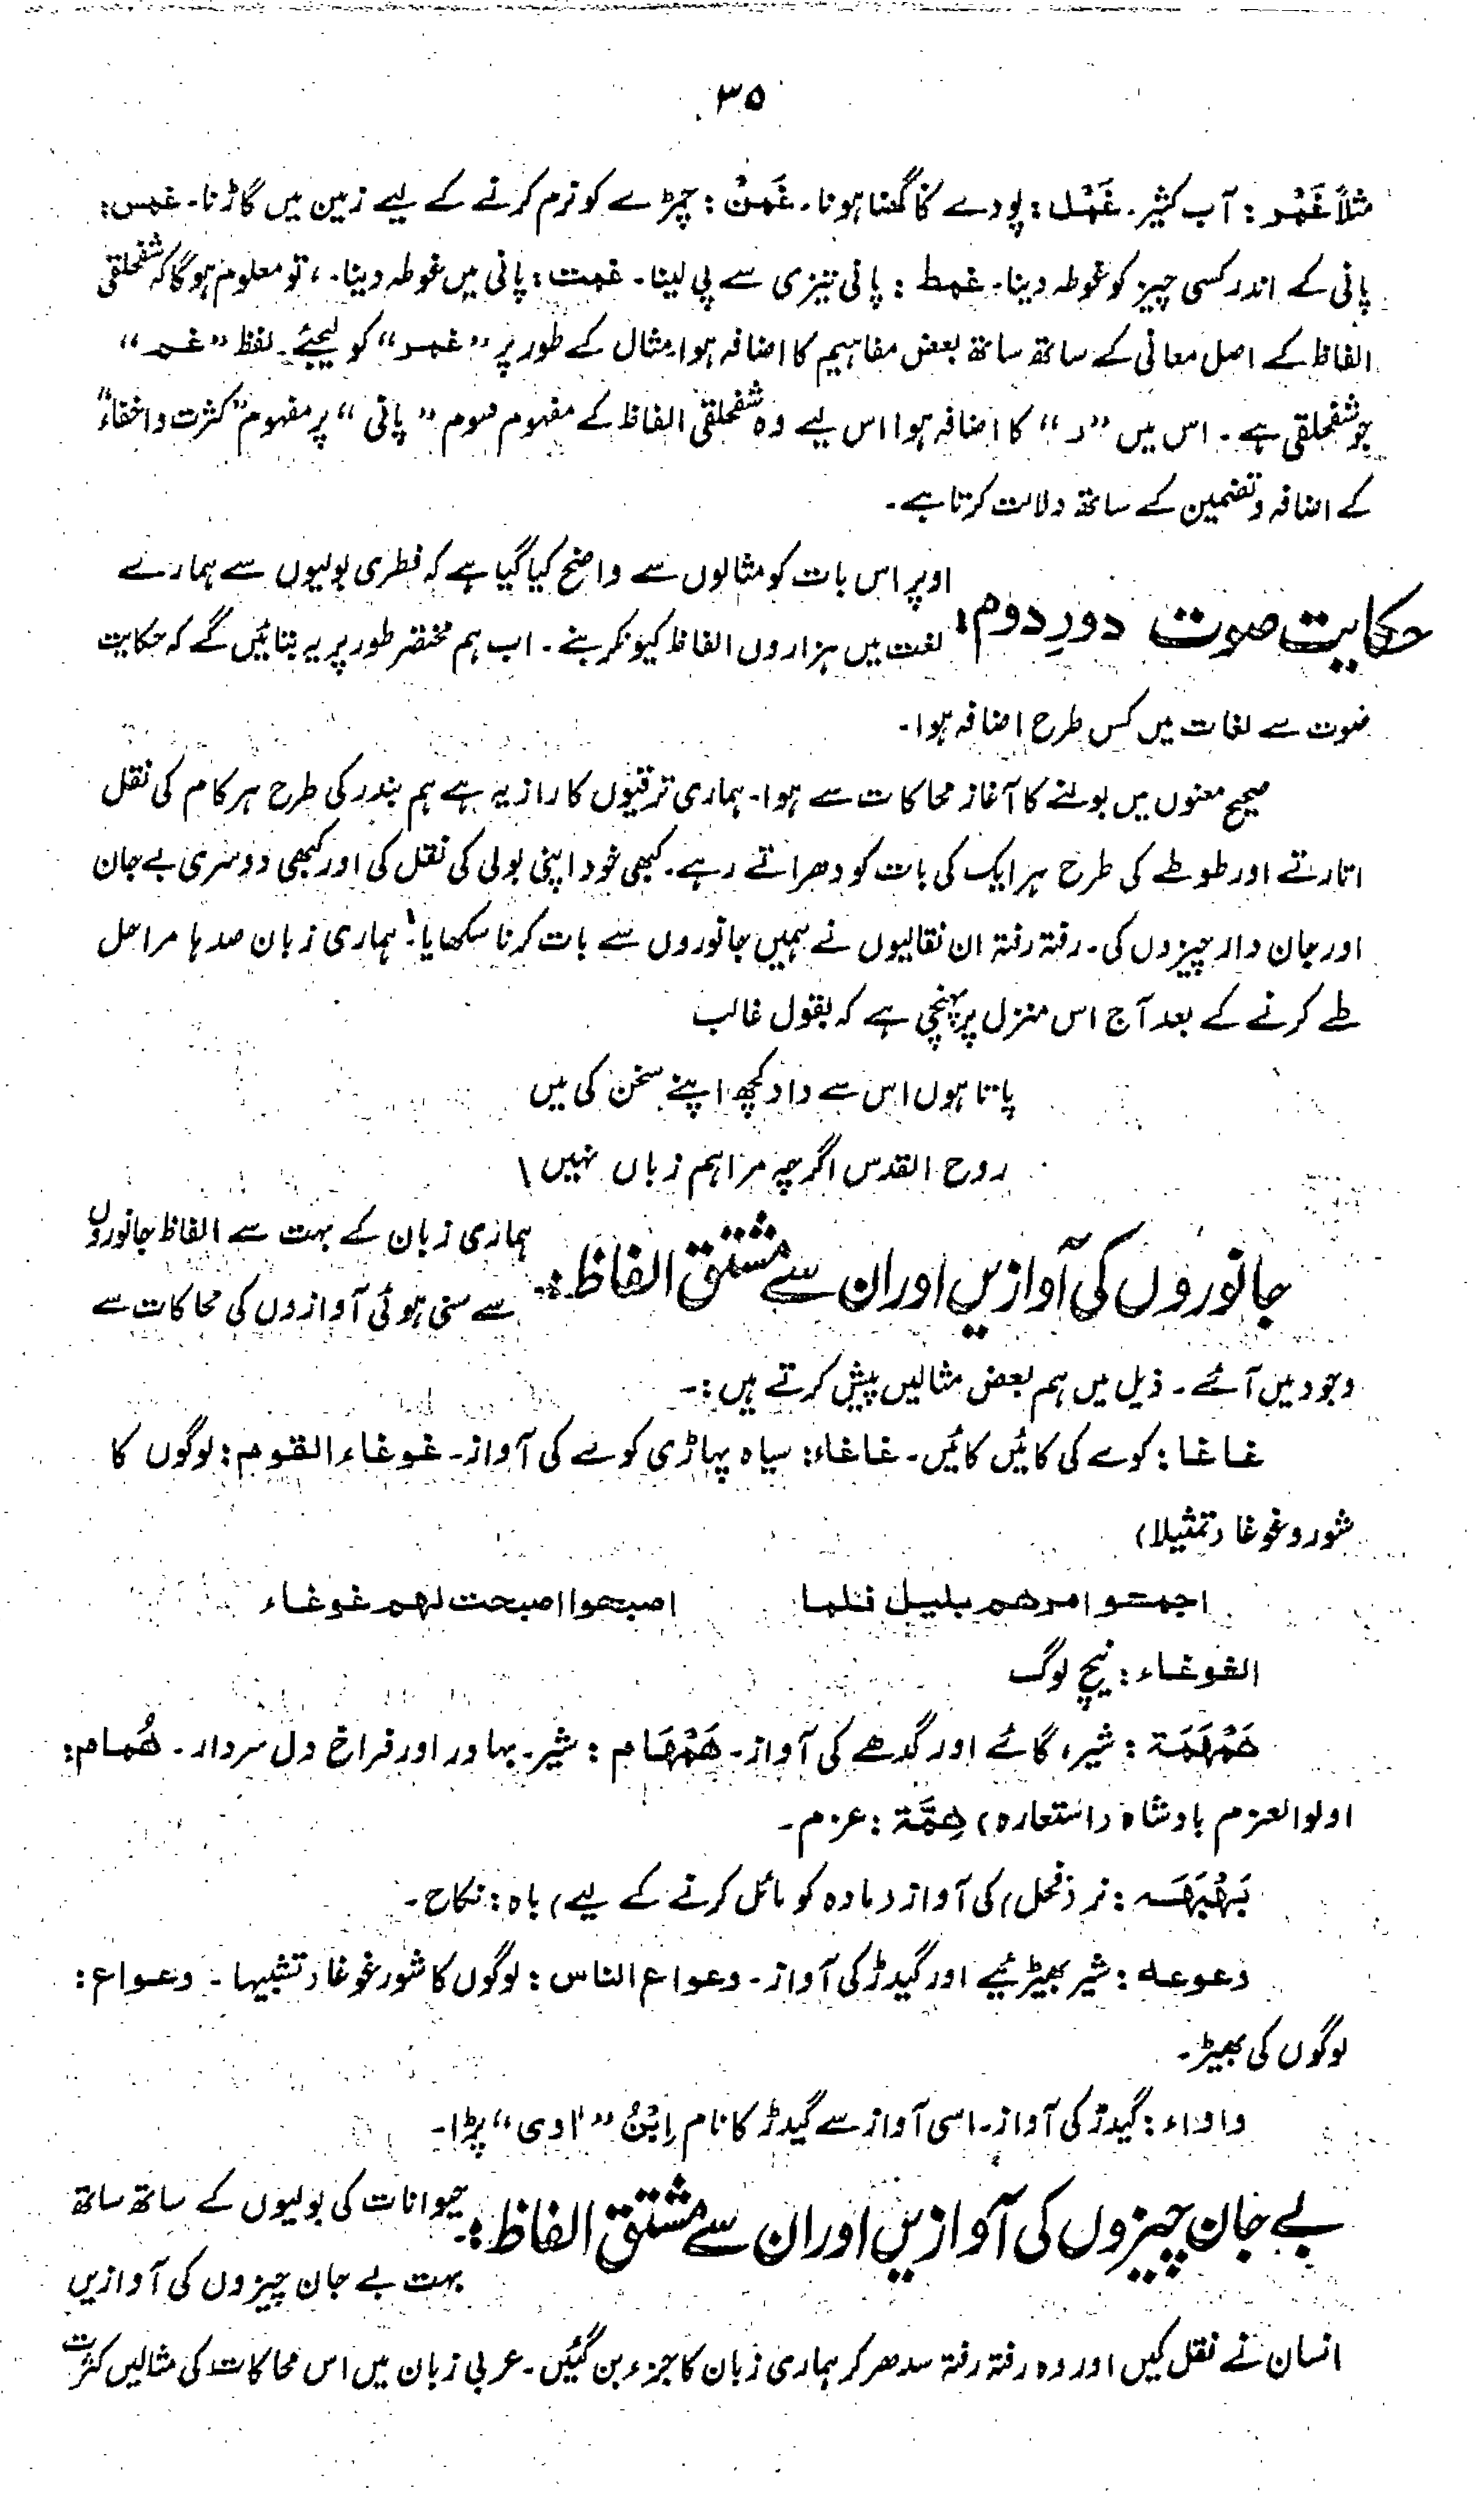 ۳۵
مثلاً غَمْر : آب کثیر۔ غَمْل : پودے کا گھنا ہونا۔ غَمْنٌ : چمڑے کو نرم کرنے کے لیے زمین میں گاڑنا۔ غمس :
پانی کے اندر کسی چیز کو غوطہ دینا۔ غمط : پانی تیزی سے پی لینا۔ غمت : پانی میں غوطہ دینا۔ ، تو معلوم ہوگا کہ شفحلقی
الفاظ کے اصل معانی کے ساتھ ساتھ بعض مفاہیم کا اضافہ ہوا مثال کے طور پر ”غمر“ کو لیجئے۔ لفظ ”غم“
جو شفحلقی ہے۔ اس میں ”ر“ کا اضافہ ہوا اس لیے وہ شفحلقی الفاظ کے مفہوم سوم ”پانی“ پر مفہوم ”کثرت و اخفاء“
کے اضافہ و تضمین کے ساتھ دلالت کرتا ہے۔
حکایت صوت دورِ دوم، اوپر اس بات کو مثالوں سے واضح کیا گیا ہے کہ فطری بولیوں سے ہمارے
لغت میں ہزاروں الفاظ کیونکر بنے۔ اب ہم مختصر طور پر یہ بتائیں گے کہ حکایت
صوت سے لغات میں کس طرح اضافہ ہوا۔
صحیح معنوں میں بولنے کا آغاز محاکات سے ہوا۔ ہماری ترقیوں کا راز یہ ہے ہم بندر کی طرح ہر کام کی نقل
اتارتے اور طوطے کی طرح ہر ایک کی بات کو دھراتے رہے۔ کبھی خود اپنی بولی کی نقل کی اور کبھی دوسری بے جان
اور جان دار چیزوں کی۔ رفتہ رفتہ ان نقالیوں نے ہمیں جانوروں سے بات کرنا سکھایا! ہماری زبان صدہا مراحل
طے کرنے کے بعد آج اس منزل پر پہنچی ہے کہ بقول غالب
پاتا ہوں اس سے داد کچھ اپنے سخن کی میں
روح القدس اگرچہ مرا ہم زباں نہیں \
جانوروں کی آوازیں اور ان سے مشتق الفاظ :۔ ہماری زبان کے بہت سے الفاظ جانوروں
سے سنی ہوئی آوازوں کی محاکات سے
وجود میں آئے۔ ذیل میں ہم بعض مثالیں پیش کرتے ہیں :۔
غاغا : کوے کی کائیں کائیں۔ غاغاء : سیاہ پہاڑی کوے کی آواز۔ غوغاء القوم : لوگوں کا
شور و غوغا (تمثیلا)
اجمعوا امرهم بليل فلما اصبحوا اصبحت لهم غوغاء
الغوغاء : نیچ لوگ
هَمْهَمَة : شیر، گائے اور گدھے کی آواز۔ هَمْهَام : شیر۔ بہادر اور فراخ دل سردار۔ هُمام :
اولوالعزم بادشاہ (استعارہ) هِمَّة : عزم۔
بَهْبَهَه : نر (فحل) کی آواز (مادہ کو مائل کرنے کے لیے) باہ : نکاح۔
دعوعه : شیر بھیڑئیے اور گیدڑ کی آواز۔ دعواع الناس : لوگوں کا شور غوغا (تشبیہا۔ دعواع :
لوگوں کی بھیڑ۔
واواء : گیدڑ کی آواز۔ اسی آواز سے گیدڑ کا نام اِبْنُ ”اوی“ پڑا۔
بے جان چیزوں کی آوازیں اور ان سے مشتق الفاظ :۔ حیوانات کی بولیوں کے ساتھ ساتھ
بہت بے جان چیزوں کی آوازیں
انسان نے نقل کیں اور وہ رفتہ رفتہ سدھر کر ہماری زبان کا جزء بن گئیں۔ عربی زبان میں اس محاکات کی مثالیں کثرت